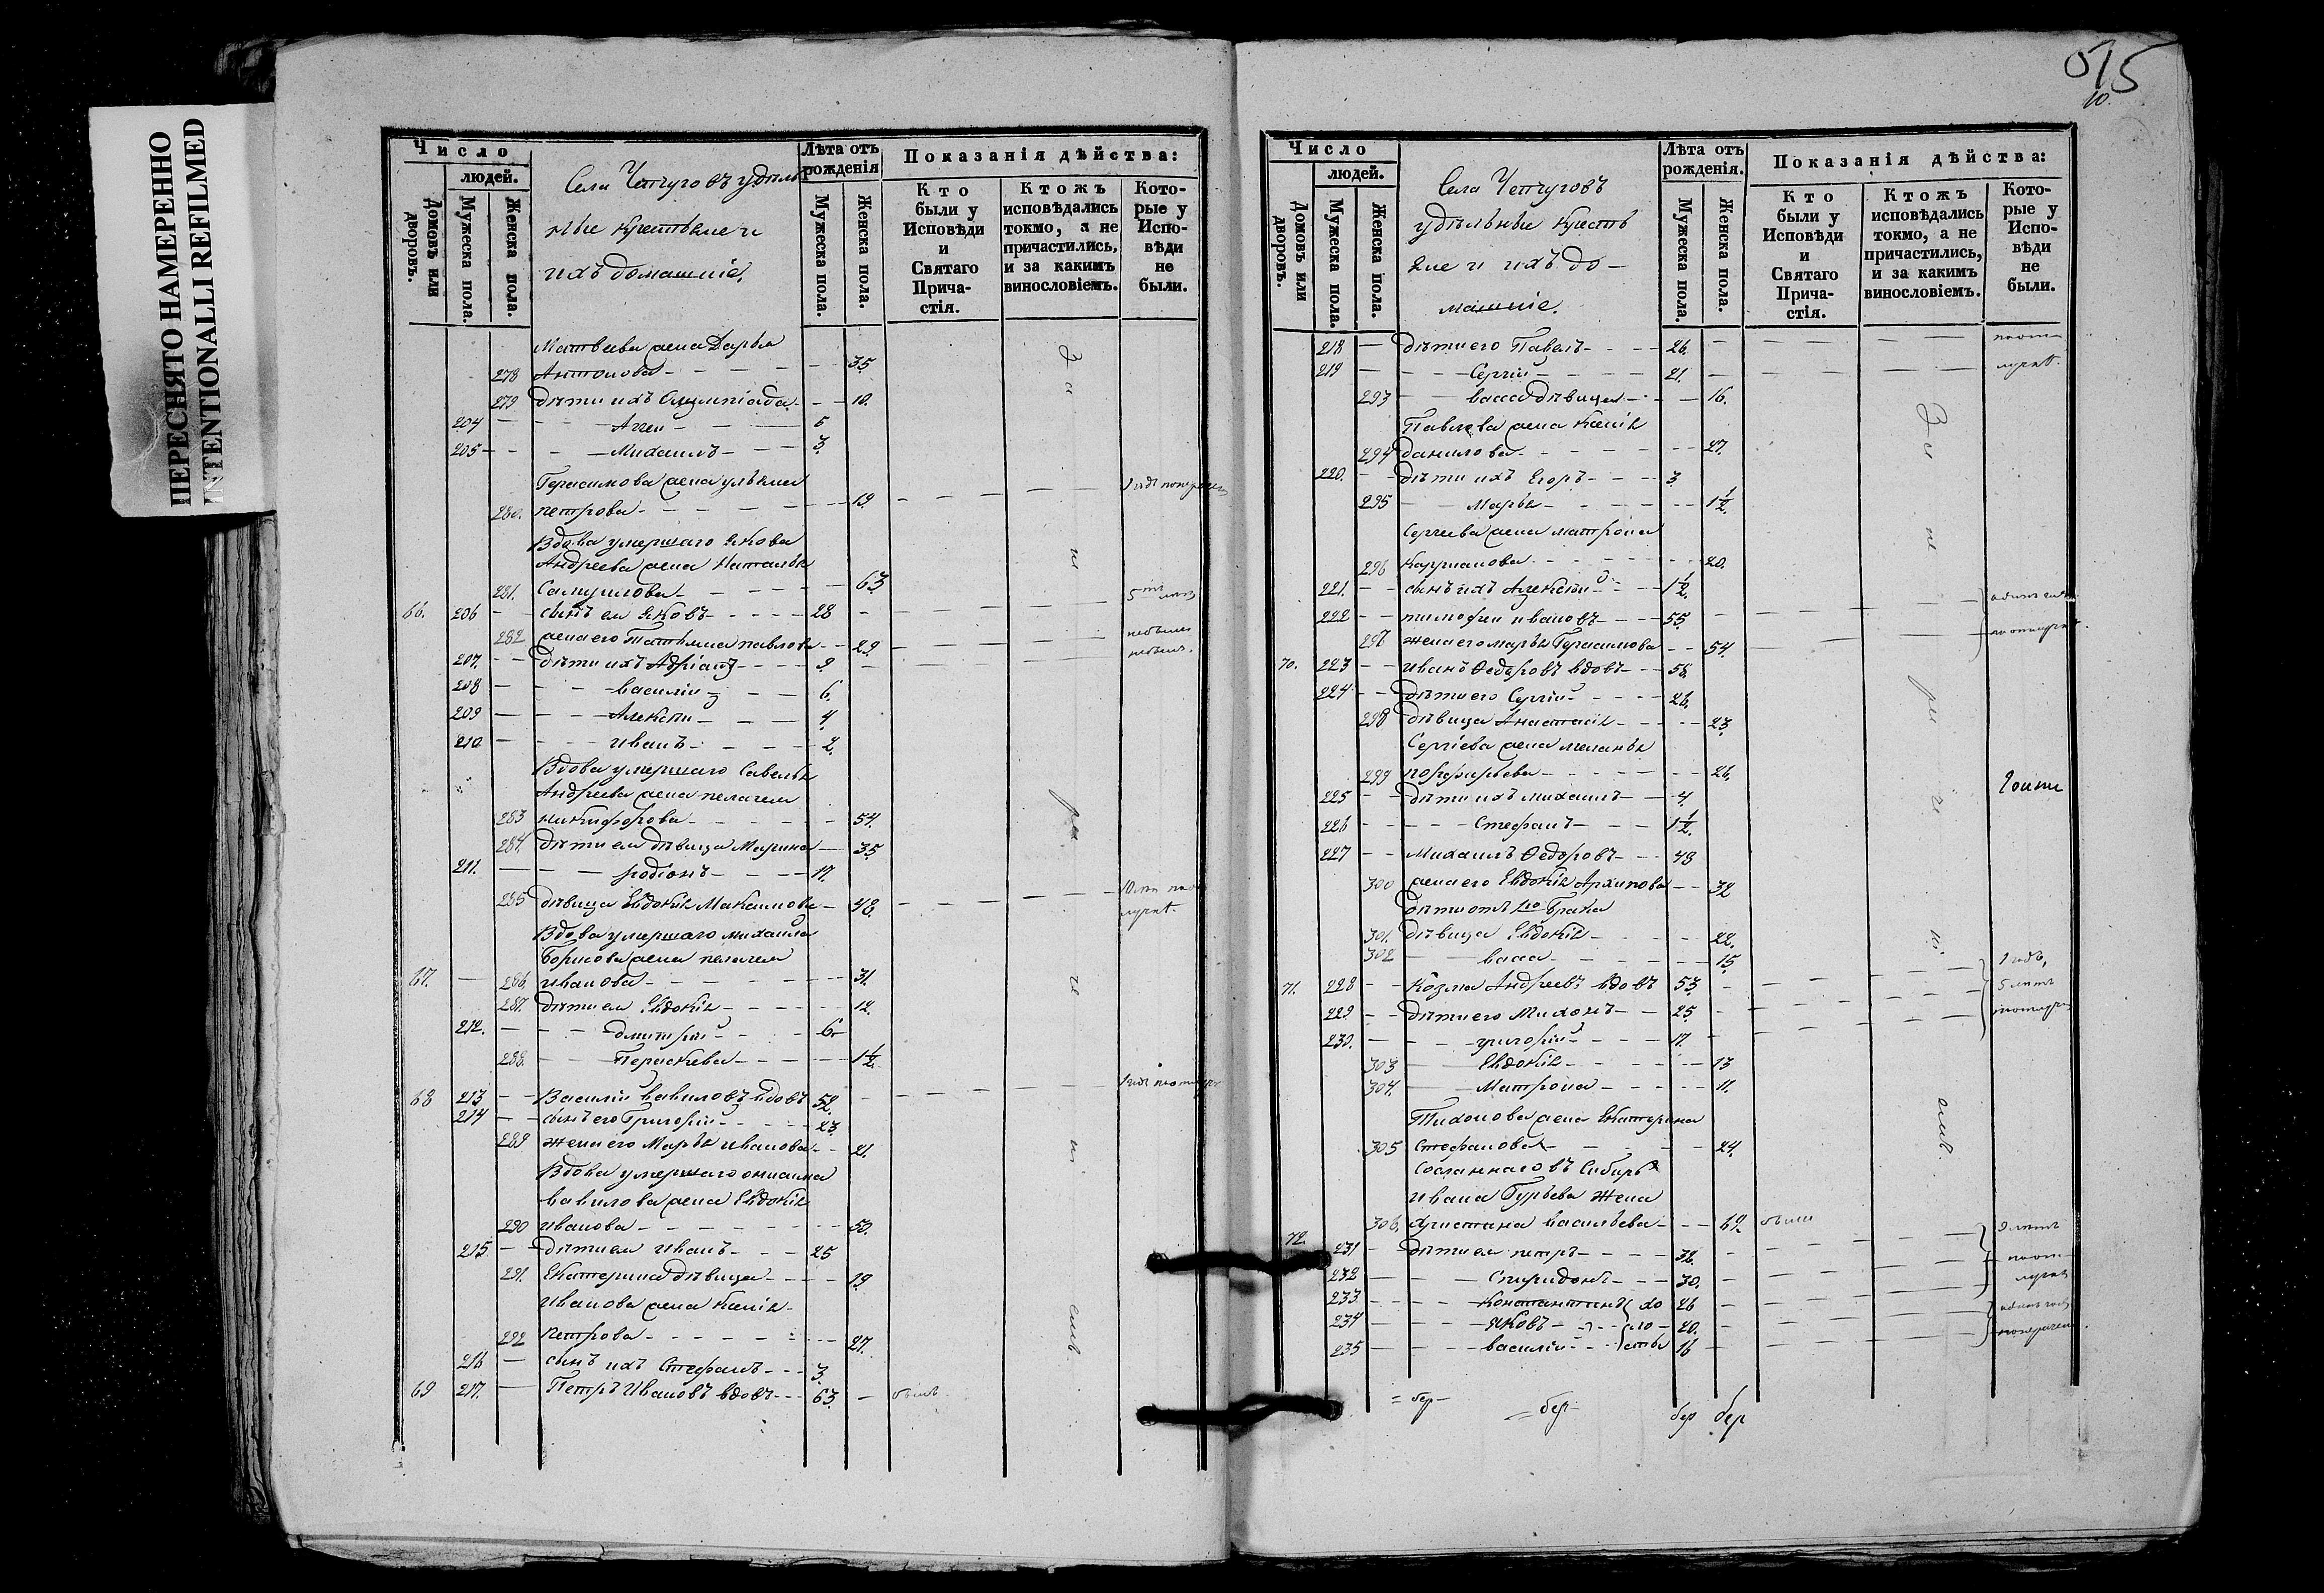 ПЕРЕСНЯТО НАМЕРЕННО
INTENTIONALLI REFILMED
Число
людей.
Домовъ или дворовъ.
Мужеска пола.
Женска пола.
Села Чепчуговъ удѣль
ные крестьяне и
ихъ домашніе.
Лѣта отъ рожденія
Мужеска пола.
Женска пола.
Показанія дѣйства:
Кто были у Исповѣди и Святаго Причастія.
Ктожъ исповѣдались токмо, а не причастились, и за какимъ винословіемъ.
Которые у Исповѣди не были.
Матвѣева жена Дарья
278 Антонова 35
279 Дѣти ихъ Олимпіада 10.
204 Аггей 5
205 Михаилъ 3.
Герасимова жена Ульяна
280. Петрова 19
Вдова умершаго Якова
Андреева жена Наталья
281. Самуилова 63
66. 206 сынъ ея Яковъ 28
282 жена его Татьяна Павлова 29
207. дѣти ихъ Адріанъ 9
208 Василій 6.
209 Алексѣй 4.
210 Иванъ 2.
Вдова умершаго Савелья
Андреева жена Пелагея
283 Никифорова 54.
284. дѣти ея дѣвица Марина 35
211. Родіонъ 17.
285 дѣвица Евдокія Максимова 48.
Вдова умершаго Михаила
Борисова жена Пелагея
67. 286. Иванова 31.
287. дѣти ея Евдокія 12.
212. Димитрій 6
288. Параскева 1½
68 213 Василій Вавиловъ вдовъ 52.
214 сынъ его Григорій 23
289 жена его Марья Иванова 21.
Вдова умершаго Онисима
Вавилова жена Евдокія
290 Иванова 50.
215 дѣти ея Иванъ 25
291. Екатерина дѣвица 19
Иванова жена Ксенія
292 Петрова 27.
216 сынъ ихъ Стефанъ 3.
69 217. Петръ Ивановъ вдовъ 63. былъ
515
10.
Число
людей.
Домовъ или дворовъ.
Мужеска пола.
Женска пола.
Села Чепчуговъ
удѣльные крестья
яне и ихъ до-
машніе.
Лѣта отъ рожденія.
Мужеска пола.
Женска пола.
Показанія дѣйства:
Кто были у Исповѣди и Святаго Причастія.
Ктожъ исповѣдались токмо, а не причастились, и за какимъ винословіемъ.
Которые у Исповѣди не были.
218 дѣти его Павелъ 26.
219 Сергій 21.
293 Васса дѣвица 16.
Павлова жена Ксенія
294 Данилова 27.
220. дѣти ихъ Егоръ 3
295 Марья 1½
Сергіева жена Матрона
296 20.
221. сынъ ихъ Алексѣй 1½.
222 Тимофей Ивановъ 55.
297 жена его Марья Герасимова 54.
70. 223 Иванъ Ѳедоровъ вдовъ 58.
224 дѣти его Сергій 26.
298 дѣвица Анастасія 23.
Сергіева жена Меланья
299 Порфирьева 26.
225 дѣти ихъ Михаилъ 4.
226 Стефанъ 1½.
227 Михаилъ Ѳедоровъ 43
300 жена его Евдокія Архипова 32
дѣти отъ 1го брака
301. дѣвица Евдокія 22.
302 Васса 15
71. 228 Козма Андреевъ вдовъ 53.
229 дѣти его Тихонъ 25.
230. Григорій 17.
303 Евдокія 13
304. Матрона 11.
Тихонова жена Екатерина
305 Стефанова 24.
Сосланнаго въ Сибирь
Ивана Гурьева жена
306. Христина Васильева 62. была
72. 231 дѣти ея Петръ 32.
232 Спиридонъ 30.
233 Константинъ хо 26
234 Яковъ ло 20.
235 Василій сты 16